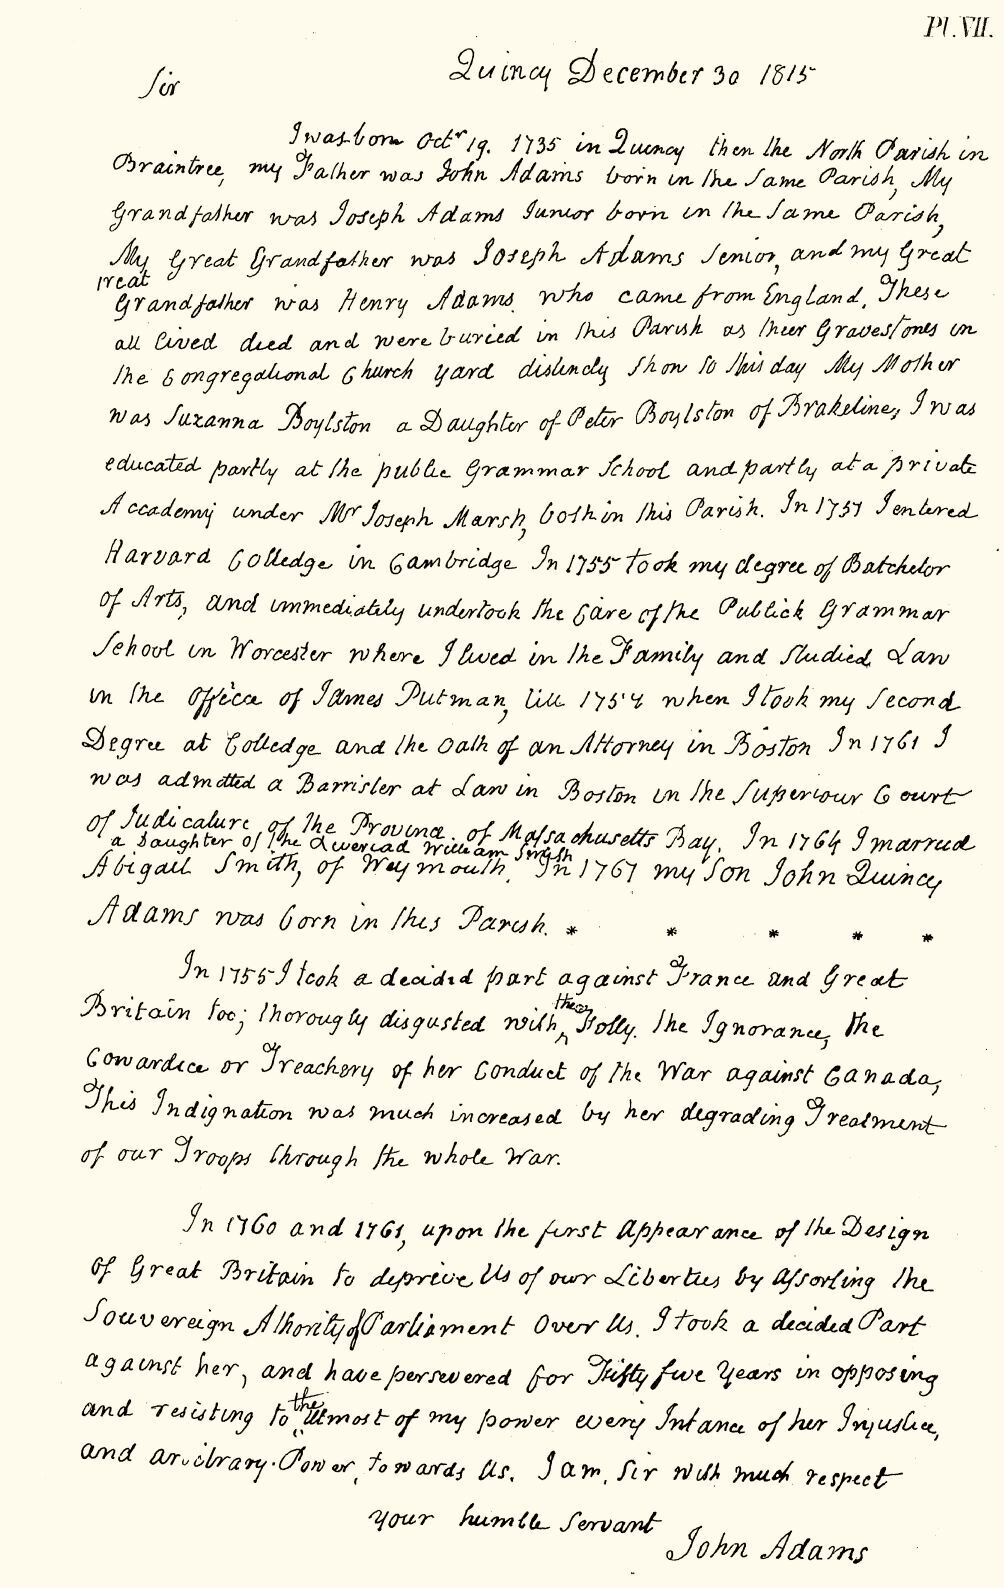 Pl. VII.
Quincy December 30 1815
Sir
I was born Octr 19. 1735 in Quincy then the North Parish in
Braintree, my Father was John Adams born in the same Parish, My
Grandfather was Joseph Adams Junior born in the same Parish,
My Great Grandfather was Joseph Adams senior, and my Great
reat
Grandfather was Henry Adams who came from England. These
all lived died and were buried in this Parish as their Gravestones in
the Congregational Church yard distinctly shon to this day My Mother
was Suzanna Boylston a Daughter of Peter Boylston of Brakeline, I was
educated partly at the public Grammar School and partly at a private
Accademy under Mr Joseph Marsh, both in this Parish. In 1751 I entered
Harvard Colledge in Cambridge In 1755 took my degree of Batchelor
of Arts, and immediately undertook the Care of the Publick Grammar
School in Worcester where I lived in the Family and studied Law
in the office of James Putman, till 1758 when I took my second
Degree at Colledge and the oath of an Attorney in Boston In 1761 I
was admitted a Barrister at Law in Boston in the Superiour Court
of Judicature of the Province of Massachusetts Bay. In 1764 I married
a Daughter of the William Smith
Abigail Smith, of Weymouth. In 1767 my Son John Quincy
Adams was born in this Parish. * * * * *
In 1755 I took a decided part against France and Great
Britain too; thorougly disgusted with
the
Folly. the Ignorance, the
Cowardice or Treachery of her Conduct of the War against Canada,
This Indignation was much increased by her degrading Treatment
of our Troops through the whole War.
In 1760 and 1761, upon the first Appearance of the Design
of Great Britain to deprive Us of our Liberties by Assorting the
Souvereign Athority of Parliament over Us. I took a decided Part
against her, and have persevered for Fifty five Years in opposing
and resisting to
the
utmost of my power every Intance of her Injustice,
and arbitrary Power, towards Us. I am, Sir with much respect
your humble Servant
John Adams